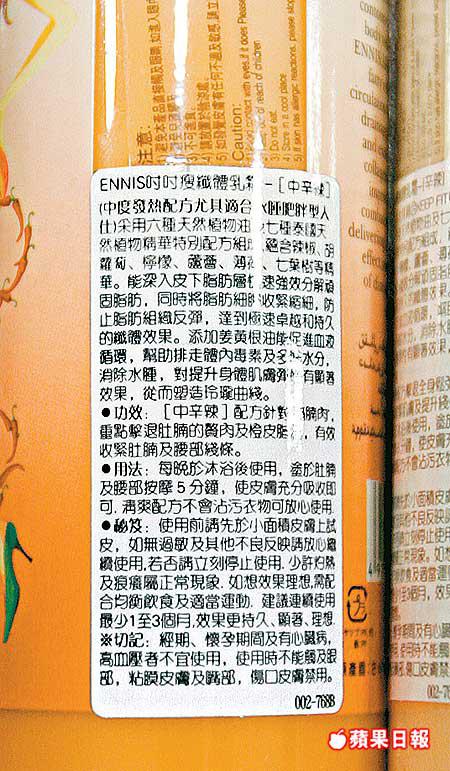 注意:
Caution:
of reach of children
3) Do not eat
4) Store in a cool place
5) If skin has allergic reactions, please stop
ENNIS吋吋瘦纖體乳霜-[中辛辣]
(中度發熱配方尤其適合水腫肥胖型人
仕)采用六種天然植物油及七種泰國天
然植物精華特別配方組成,蘊合辣椒、胡
蘿蔔、檸檬、蘆薈、薄荷、七葉樹等精
華。能深入皮下脂肪層快速強效分解頑
固脂肪,同時將脂肪細胞收緊縮細,防
止脂肪組織反彈,達到極速卓越和持久
的纖體效果。添加姜黃根油能促進血液
循環,幫助排走體內毒素及多餘水分,
消除水腫,對提升身體肌膚彈性有顯著
效果,從而塑造玲瓏曲綫。
●功效:[中辛辣]配方針對
重點擊退肚腩的贅肉及橙皮脂肪,有效
收緊肚腩及腰部綫條。
●用法:每晚於沐浴後使用,塗於肚腩
及腰部按摩5分鐘,使皮膚充分吸收即
可,清爽配方不會沾污衣物可放心使用.
●秘笈:使用前請先於小面積皮膚上試
皮,如無過敏及其他不良反映請放心繼
續使用,若否請立刻停止使用.少許灼熱
及痕癢屬正常現象.如想效果理想,需配
合均衡飲食及適當運動.建議連續使用
最少1至3個月,效果更持久、顯著、理想.
※切記:經期、懷孕期間及有心臟病,
高血壓者不宜使用,使用時不能觸及眼
部,粘膜皮膚及嘴部,傷口皮膚禁用。
002-788B
蘋果日報